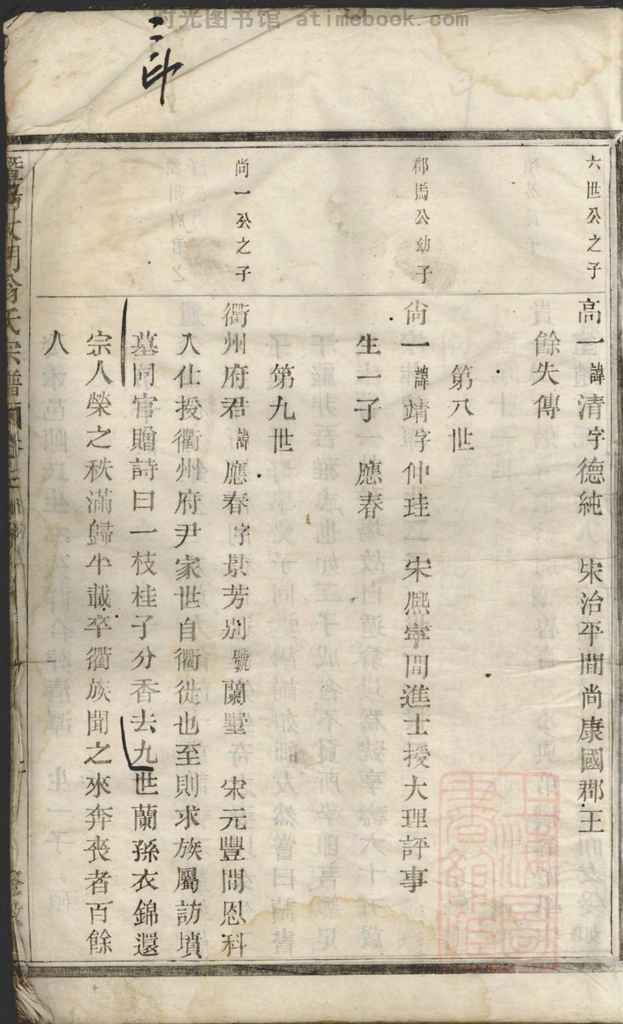 时光图书馆 atimebook.com
二印
六世公之子
高一諱清字德純 宋治平間尚康國郡王
餘失傳
第八世
郡馬公幼子
尙一諱靖字仲珪 宋熈寧間進士授大理評事
生一子 應春
第九世
尚一公之子
衢州府君諱應春字景芳别號蘭墅 宋元豐間恩科
入仕授衢州府尹家世自衢徙也至則求族屬訪墳
墓同官贈詩曰一枝桂子分香去九世蘭孫衣錦還
宗人榮之秩滿歸半載卒衢族聞之來奔喪者百餘
人
氏宗譜